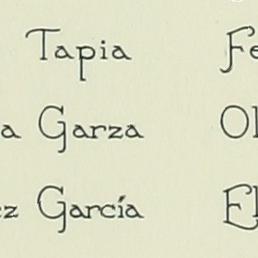 Tapia Fe
a Garza Ol
ez García El